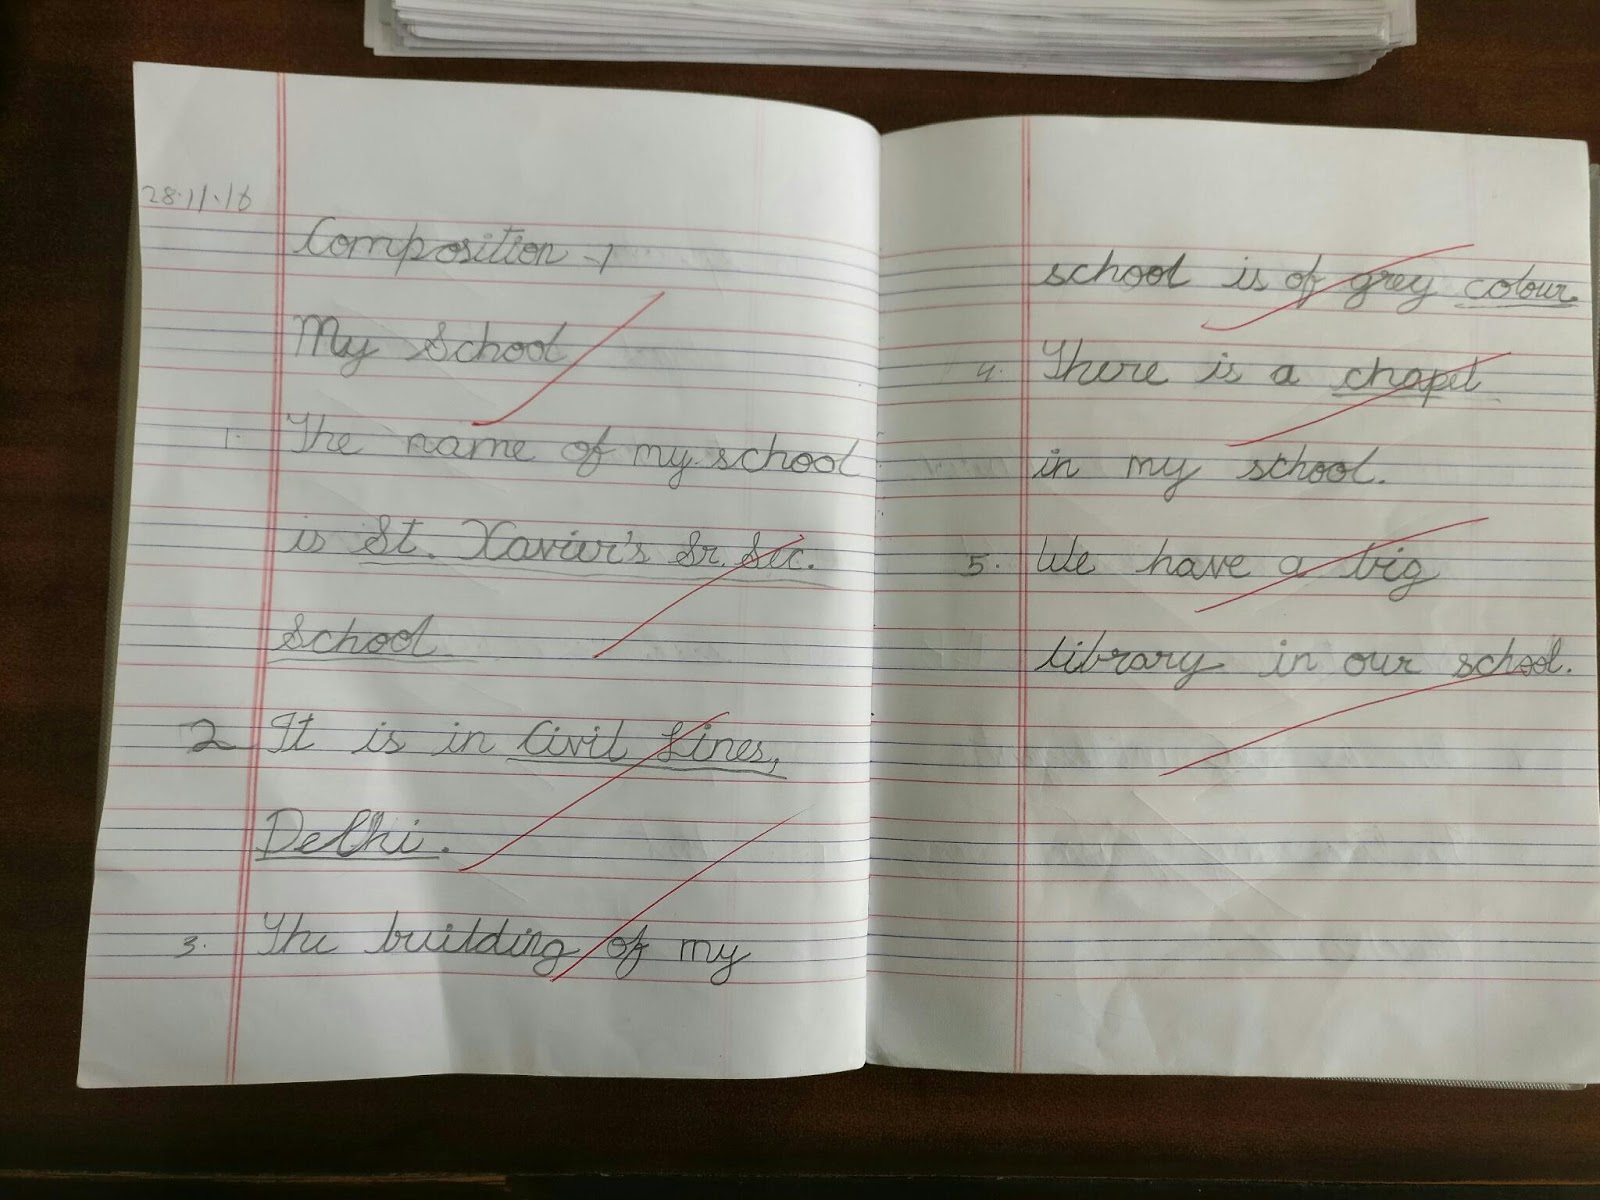 28.11.16
Composition -1
My School
1. The name of my school
is St. Xavier's Sr. Sec.
School
2 It is in Civil Lines,
Delhi.
3. The building of my
school is of grey colour.
4. There is a chapel
in my school.
5. We have a big
library in our school.